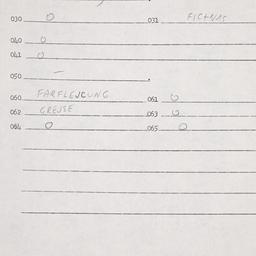 030 0 031 FICHNAS
040 0
041 0
050 –
060 FARFLEJCUNG 061 0
062 GREJSE 063 0
064 0 065 0